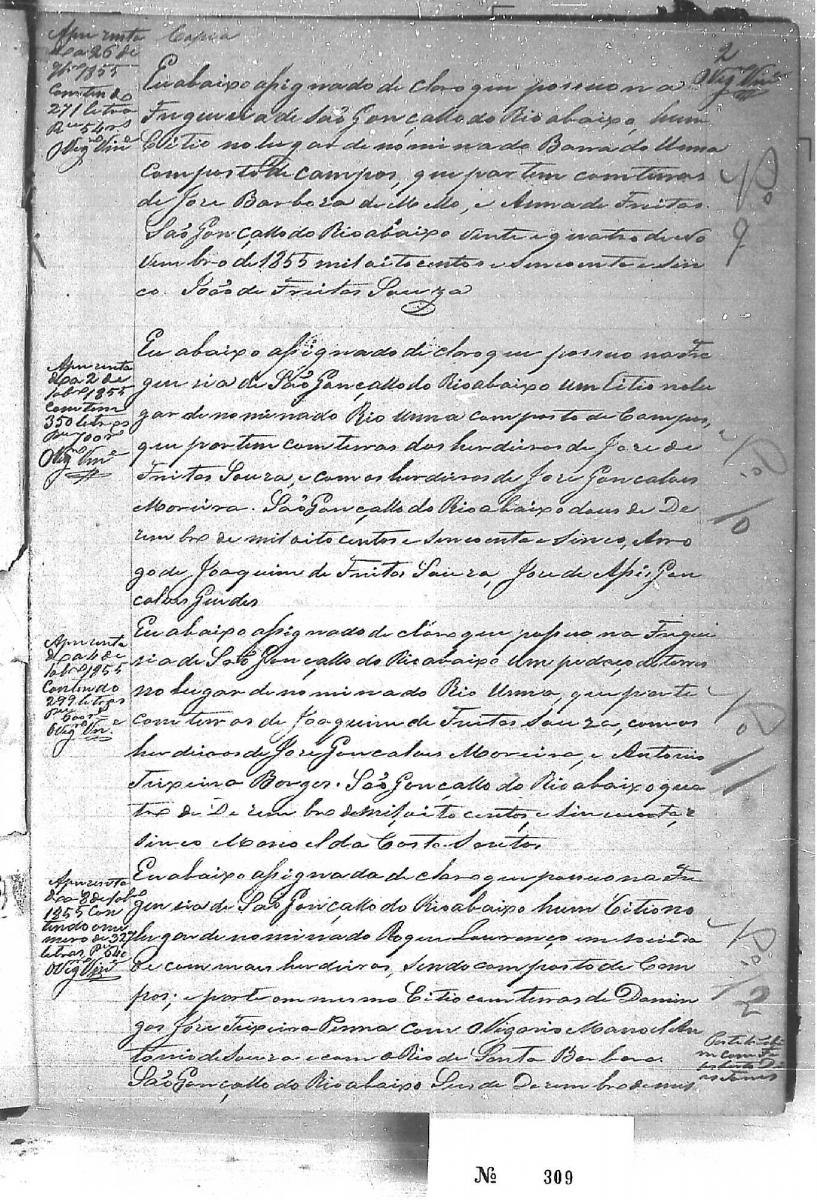 Aprezenta
da a 26 de
9br.º 1855
Contendo
271 letras
R.s 542 rs
O Vigr.º Vin.e
Copia
2
O Vigr.º Vin.e
Eu abaixo assignado declaro que possuo na
Freguesia de São Gonçallo do Rio abaixo, hum
Citio no lugar denominado Barra do Una
Composto de Campos, que partem com terras
de Joze Barboza de Mello, e Anna de Freitas.
São Gonçallo do Rio abaixo vinte e quatro de No
vembro de 1855 mil oito centos e sincoenta e sin
co. João de Freitas Souza
9
Aprezenta
da a 2 de
1855
Contem
350 letras
R.s 700 r.s
O Vigr.º Vin.e
Eu abaixo assignado declaro que possuo na Fre
guesia de São Gonçallo do Rio abaixo um Citio no lu
gar denominado Rio Una composto de Campos,
que partem com terras dos herdeiros de Joze de
Freitas Souza, e com os herdeiros de Joze Goncalves
Moreira. São Gonçallo do Rio abaixo dous de De
zembro de mil oito centos e sincoenta e sinco, Arro
go de Joaquim de Freitas Souza, Joze de Assis Gon
calves Gendes
10
Aprezenta
da a 4 de
1855
Contendo
299 letras
R.s 600 r.s
O Vigr.º Vin.e
Eu abaixo assignado declaro que possuo na Fregue
sia de São Gonçallo do Rio abaixo um pedaço de terras
no lugar denominado Rio Una, que parte
com terras de Joaquim de Freitas Souza, com os
herdeiros de Joze Goncalves Moreira, e Antonio
Teixeira Borges. São Gonçallo do Rio abaixo qua
tro de Dezembro de mil oito centos, e sincoenta, e
sinco Manoel da Costa Santos
11
Aprezenta
da a 8 de
1855 Con
tendo o nu
mero de 327
letras R.s 640
O Vigr.º Vin.e
Eu abaixo assignada declaro que possuo na Fre
guesia de São Gonçallo do Rio abaixo hum Citio no
lugar denominado Roque Lourenço em socieda
de com mais herdeiros, sendo composto de Cam
pos; e parte o mesmo Citio com terras de Domin
gos Joze Teixeira Penna com Vigario Manoel An
tonio de Souza e com o Rio de Santa Barbara.
São Gonçallo do Rio abaixo Seis de Dezembro de mil
12
Nº 309